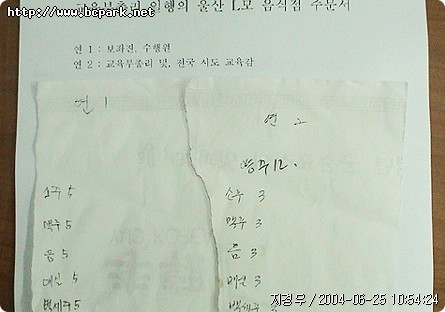 http://www.newscham.net
교육부총리 일행의 울산 L모 음식점 주문서
연 1 : 보좌진, 수행원
연 2 : 교육부총리 및, 전국 시도 교육감
연 1
연 2
방주12.
소주 5
소주 3
맥주 5
맥주 3
음 5
음 3
3
백세주 5
백세주 3
지정우 / 2004-06-25 10:54:24